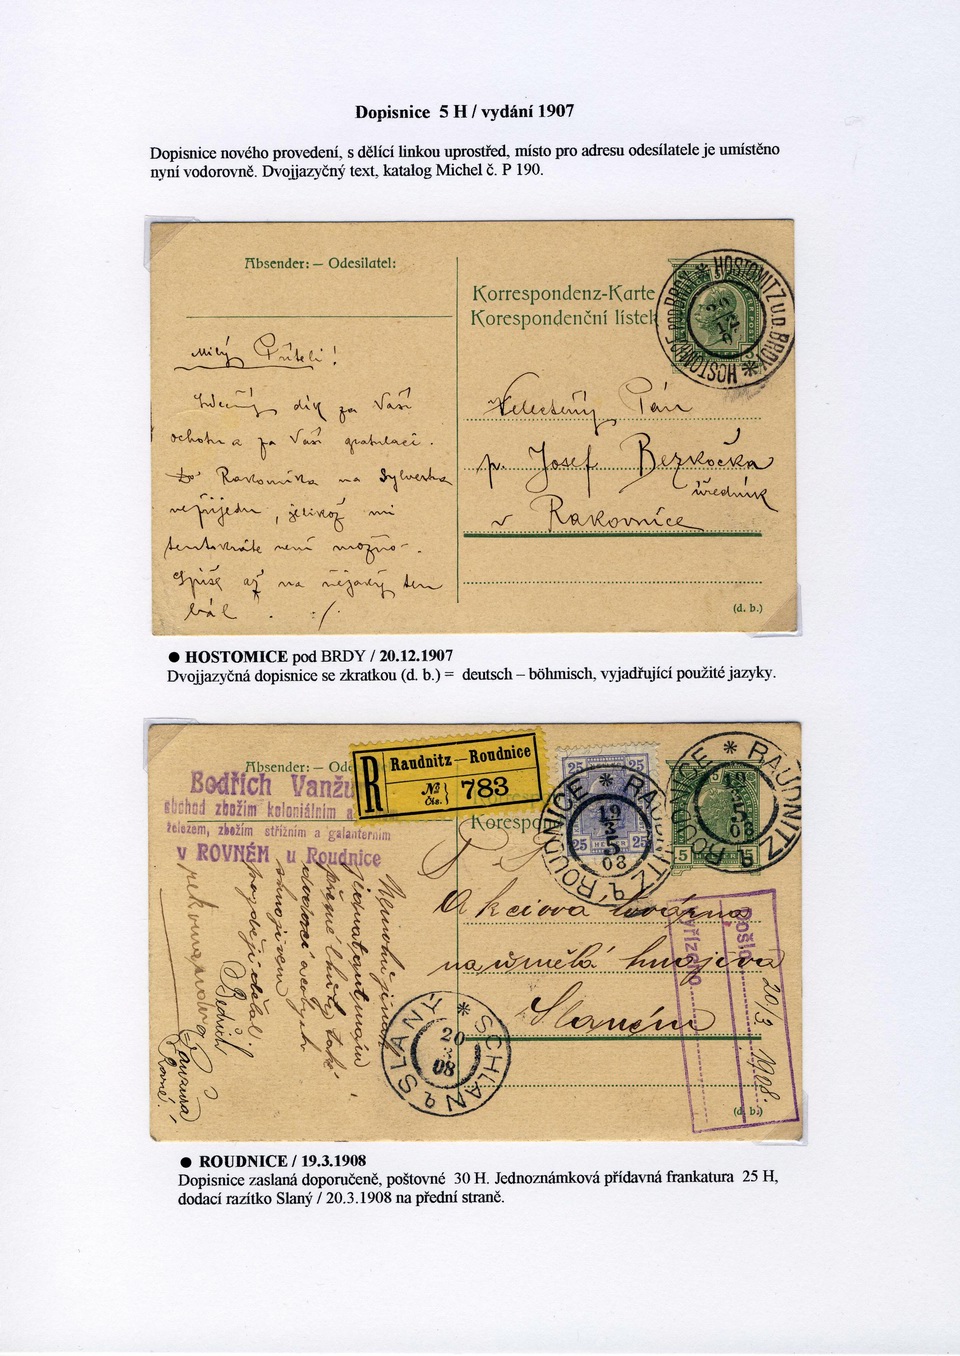 Dopisnice 5 H / vydání 1907
Dopisnice nového provedení, s dělící linkou uprostřed, místo pro adresu odesílatele je umístěno
nyní vodorovně. Dvojjazyčný text, katalog Michel č. P 190.
Absender: — Odesílatel:
Korrespondenz-Karte
Korespondenční lístek
HOSTOMITZ u.d. BRDY * HOSTOMICE POD BRDY *
20
12
Milý Příteli!
Srdečný dík za Vaši
ochotu a za Vaši gratulaci.
Do Rakovníka na Sylvestra
nepřijedu, jelikož mi
tentokráte není možno.
Spíše až na nějaký ten
bál. :/.
Velectěný Pán
p. Josef Bezkočka
úředník
v Rakovníce
(d. b.)
● HOSTOMICE pod BRDY / 20.12.1907
Dvojjazyčná dopisnice se zkratkou (d. b.) = deutsch – böhmisch, vyjadřující použité jazyky.
Absender: — Ode
Bedřich Vanžu
obchod zbožím koloniálním a
železem, zbožím střižním a galanterním
v ROVNÉM u Roudnice
R
Raudnitz—Roudnice
№ čís. 783
Koresp
25 25
25 HELLER 25
RAUDNITZ * ROUDNICE
19
3
08
5 5
RAUDNITZ * ROUDNICE
19
3
08
Akciova továrna
na umělá hnojiva
Slaném
Došlo
Vyřízeno
20/3
1908.
SCHLAN * SLANÝ
20
3
08
Bedřich
Rovné!
(d. b.)
● ROUDNICE / 19.3.1908
Dopisnice zaslaná doporučeně, poštovné 30 H. Jednoznámková přídavná frankatura 25 H,
dodací razítko Slaný / 20.3.1908 na přední straně.